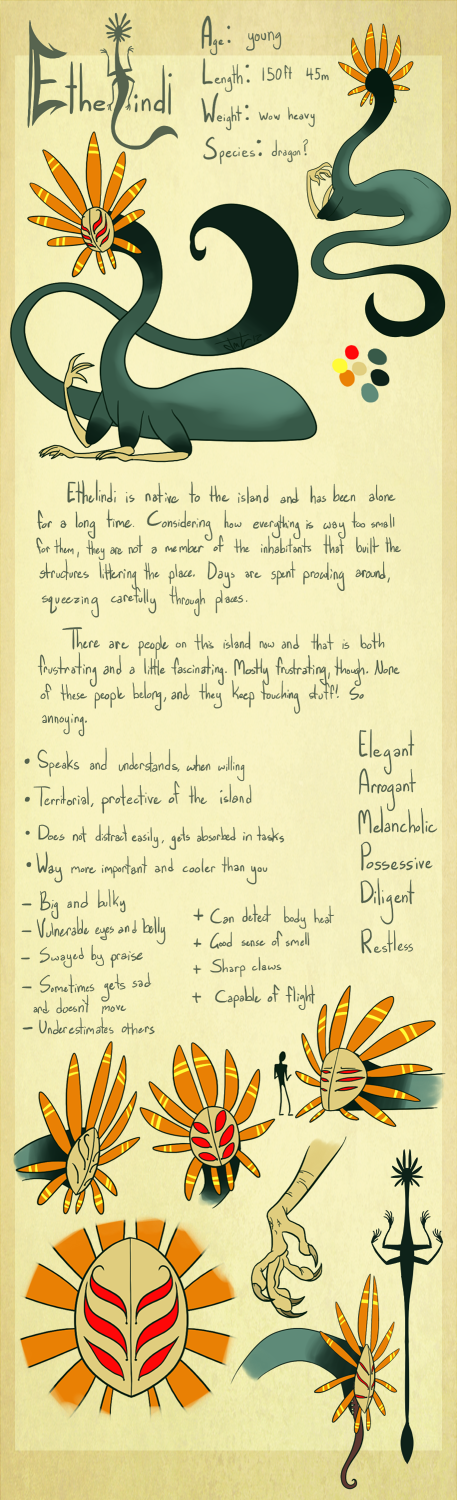 Ethelindi
Age: young
Length: 150ft 45m
Weight: wow heavy
Species: dragon?
Ethelindi is native to the island and has been alone
for a long time. Considering how everything is way too small
for them, they are not a member of the inhabitants that built the
structures littering the place. Days are spent prowling around,
squeezing carefully through places.
There are people on this island now and that is both
frustrating and a little fascinating. Mostly frustrating, though. None
of these people belong, and they keep touching stuff! So
annoying.
• Speaks and understands, when willing
• Territorial, protective of the island
• Does not distract easily, gets absorbed in tasks
• Way more important and cooler than you
Elegant
Arrogant
Melancholic
Possessive
Diligent
Restless
- Big and bulky
- Vulnerable eyes and belly
- Swayed by praise
- Sometimes gets sad
and doesn't move
- Underestimates others
+ Can detect body heat
+ Good sense of smell
+ Sharp claws
+ Capable of flight